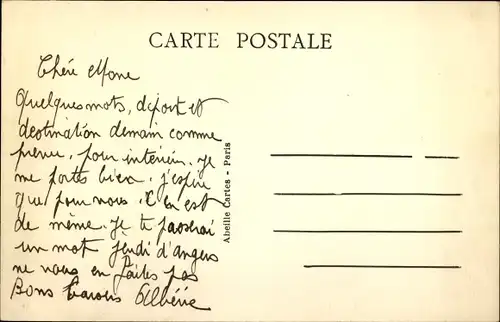 CARTE POSTALE
Chère Mone
Quelques mots, départ et
destination demain comme
prévu, pour intérieur. Je
me portes bien. j'espère
que pour vous il en est
de même. Je te passerai
un mot jeudi d'angers
ne vous en faites pas
Bons
Abeille Cartes - Paris